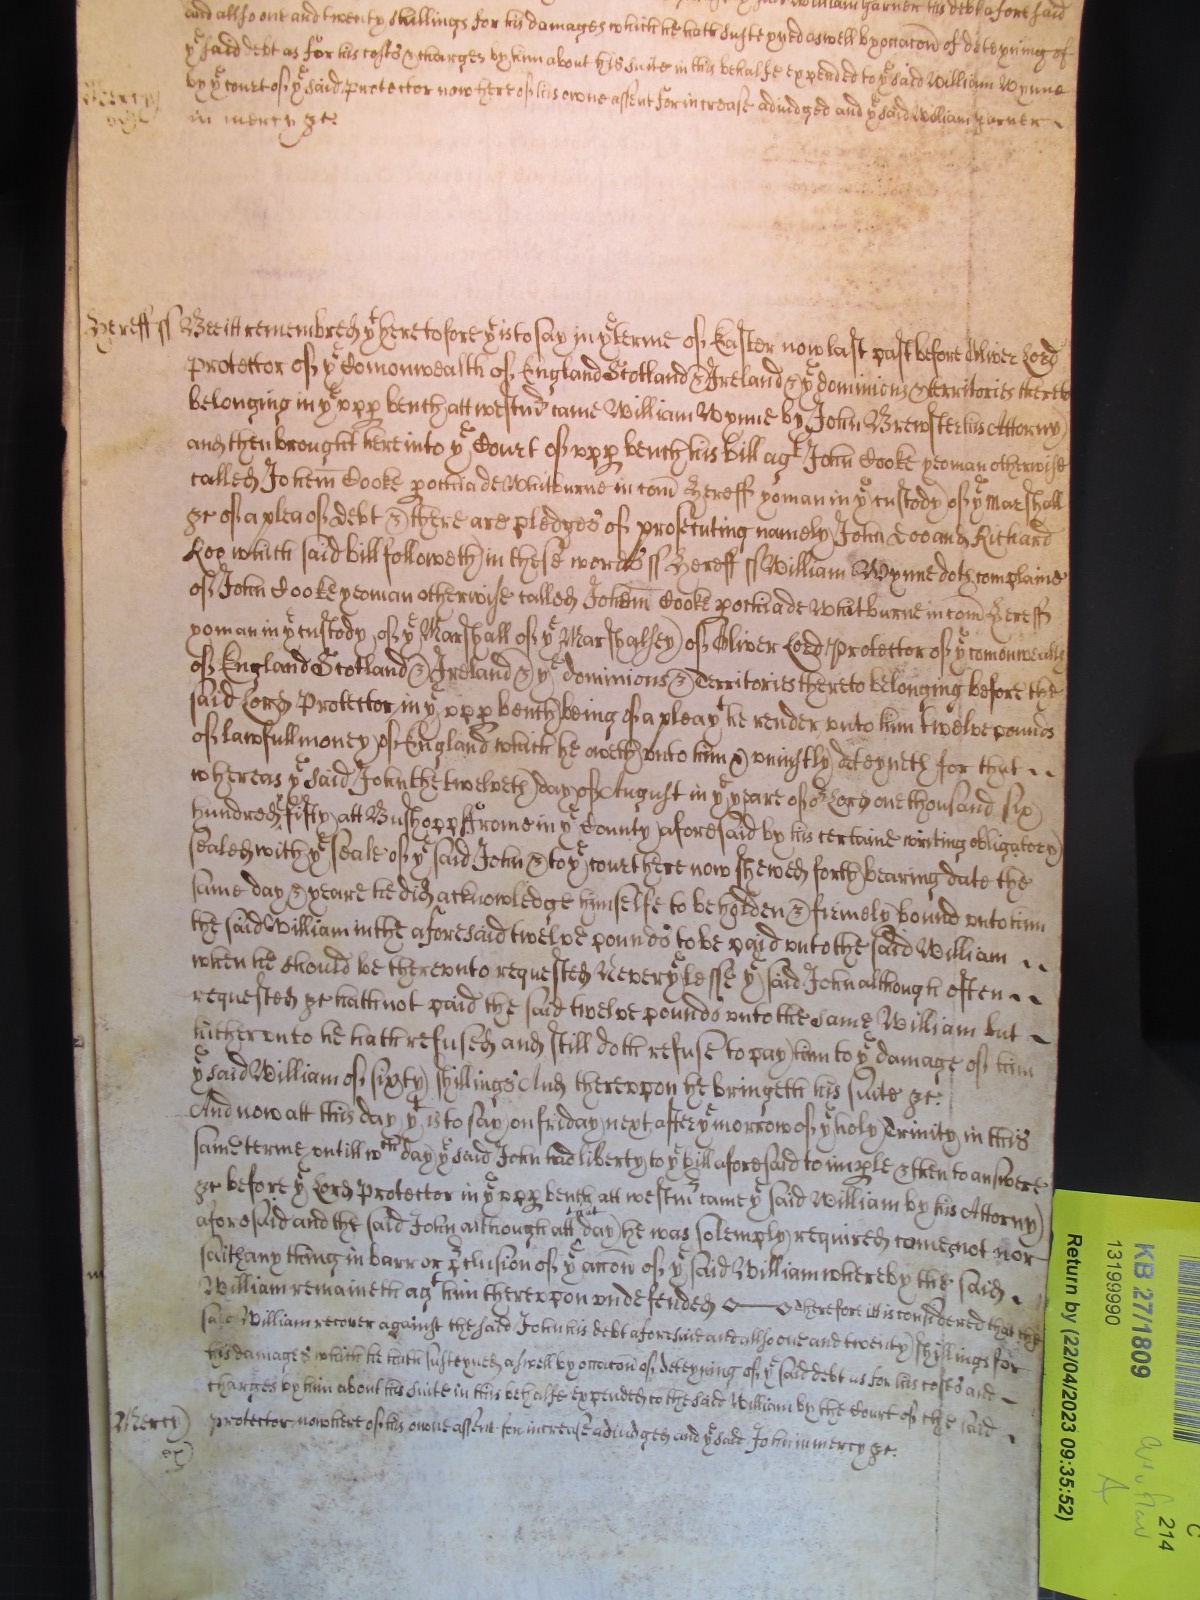 William Garner his debt aforesaid
and allso one and twenty shillings for his damages which he hath susteyned aswell by occacōn of deteyning of
yᵉ said debt as for his costs & charges by him about his suite in this behalfe expended to yᵉ said William Wynne
by yᵉ court of yᵉ said Protector now here of his owne assent for increase adiudged and yᵉ said William Garner
Mercy in mercy &c.
Hereff ss Bee itt remembred yᵗ heretofore yᵗ is to say in yᵉ terme of Easter now last past before Oliver Lord
Protector of yᵉ Comonwealth of England Scotland & Ireland & yᵉ dominions & territories thereto
belonging in yᵉ vpp bench att westmʳ came William Wynne by John Brewster his Attorny
and then brought here into yᵉ Court of vpp bench his bill agᵗ John Cooke yeoman otherwise
called Johem Cooke pochia de Whitburne in com Hereff yoman in yᵉ custody of yᵉ Marshall
&c of a plea of debt & there are pledges of prosecuting namely John Doo and Richard
Roo which said bill followeth in these words ss Hereff ss William Wynne doth complaine
of John Cooke yeoman otherwise called Johem Cooke pochia de Whitburne in com Hereff
yoman in yᵉ custody of yᵉ Marshall of yᵉ Marshalsey of Oliver Lord Protector of yᵉ comonwealth
of England Scotland & Ireland & yᵉ dominions & Territories thereto belonging before the
said Lord Protector in yᵉ vpp bench being of a plea yᵗ he render vnto him twelve pounds
of lawfull money of England which he oweth vnto him & vniustly deteyneth for that
whereas yᵉ said John the twelveth day of August in yᵉ yeare of oʳ Lord one thousand six
hundred fifty att Bushopp ffrome in yᵉ County aforesaid by his certaine writing obligatory
sealed with yᵉ seale of yᵉ said John & to yᵉ court here now shewed forth bearing date the
same day & yeare he did acknowledge himselfe to be holden & firmely bound vnto him
the said William in the aforesaid twelve pounds to be paid vnto the said William
when he should be therevnto requested Neveryᵉlesse yᵉ said John although often
requested &c hath not paid the said twelve pounds vnto the same William but
hitherunto he hath refused and still doth refuse to pay him to yᵉ damage of him
yᵉ said William of sixty shillings And therevpon he bringeth his suite &c:
And now att this day yᵗ is to say on friday next after yᵉ morrow of yᵉ holy Trinity in this
same terme vntill wᶜʰ day yᵉ said John had liberty to yᵉ bill aforesaid to imple & then to answere
&c before yᵉ Lord Protector in yᵉ vpp bench att westmʳ came yᵉ said William by his Attorny
aforesaid and the said John although att that day he was solemply required came not nor
saith any thing in barr or p̄clusion of yᵉ accōn of yᵉ said William whereby the said
William remaineth agᵗ him therevpon vndefended Therefore itt is considered that the
said William recover against the said John his debt aforesaid and allso one and twenty shillings for
his damages which he hath susteyned aswell by occacōn of deteyning of yᵉ said debt as for his costs and
charges by him about his suite in this behalfe expended to the said William by the Court of the said
Mercy Protector now here of his owne assent for increase adiudged and yᵉ said John in mercy &c.
KB 27/1809
13199990
Return by (22/04/2023 09:35:52)
C
214
A